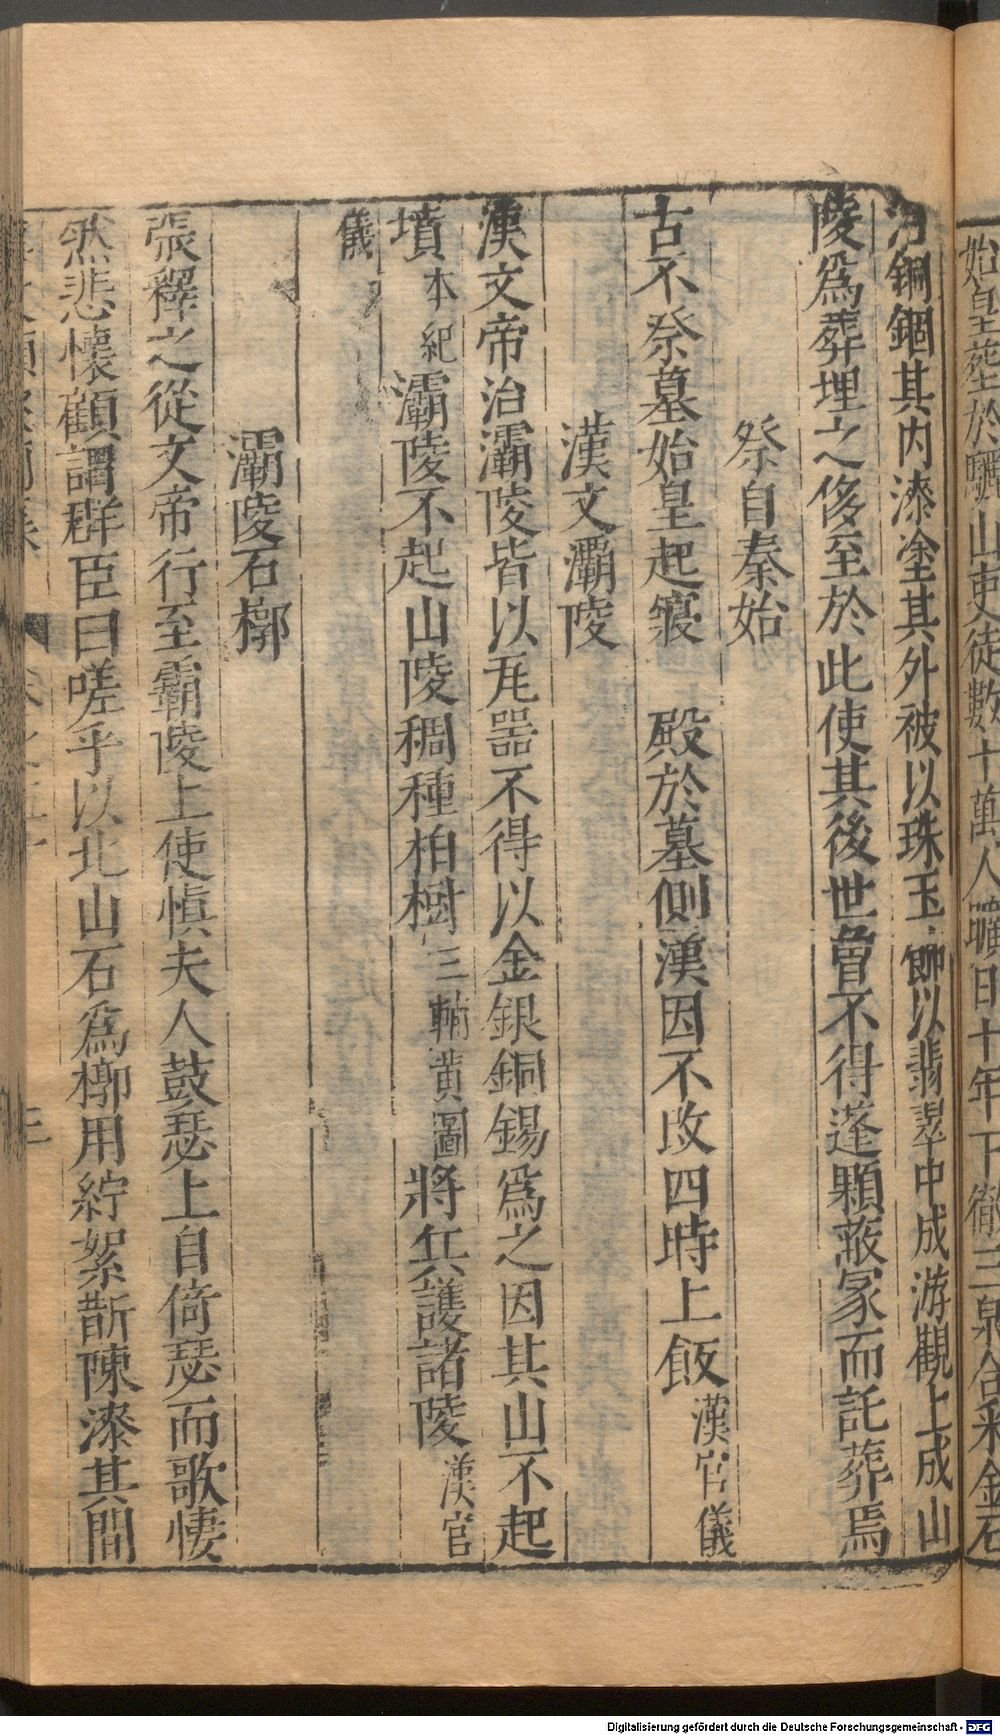 始皇葬於驪山吏徒數十萬人曠日十年下徹三泉合采金石
冶銅錮其内漆塗其外被以珠玉飾以翡翠中成游觀上成山
陵爲葬埋之侈至於此使其後世曾不得蓬顆蔽冢而託葬焉
祭自秦始
古不祭墓始皇起寢 殿於墓側漢因不改四時上飯漢官儀
漢文灞陵
漢文帝治灞陵皆以瓦器不得以金銀銅錫爲之因其山不起
墳本紀灞陵不起山陵稠種柏樹三輔黄圖將兵護諸陵漢官
儀
灞陵石槨
張釋之從文帝行至霸陵上使愼夫人鼓瑟上自倚瑟而歌悽
然悲懷顧謂群臣曰嗟乎以北山石爲槨用紵絮斮陳漆其間
Digitalisierung gefördert durch die Deutsche Forschungsgemeinschaft - DFG